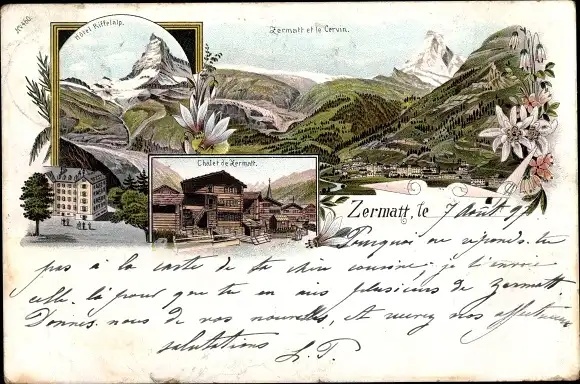 No 460.
Hôtel Riffelalp.
Zermatt et le Cervin.
Châlet de Zermatt.
Zermatt, le 7 Août 97
Pourquoi ne réponds-tu
pas à la carte de ta chère cousine. je t'envoie
celle-là pour que tu en aies plusieurs de Zermatt
Donnez-nous de vos nouvelles, et recevez nos affectueuses
salutations L. P.